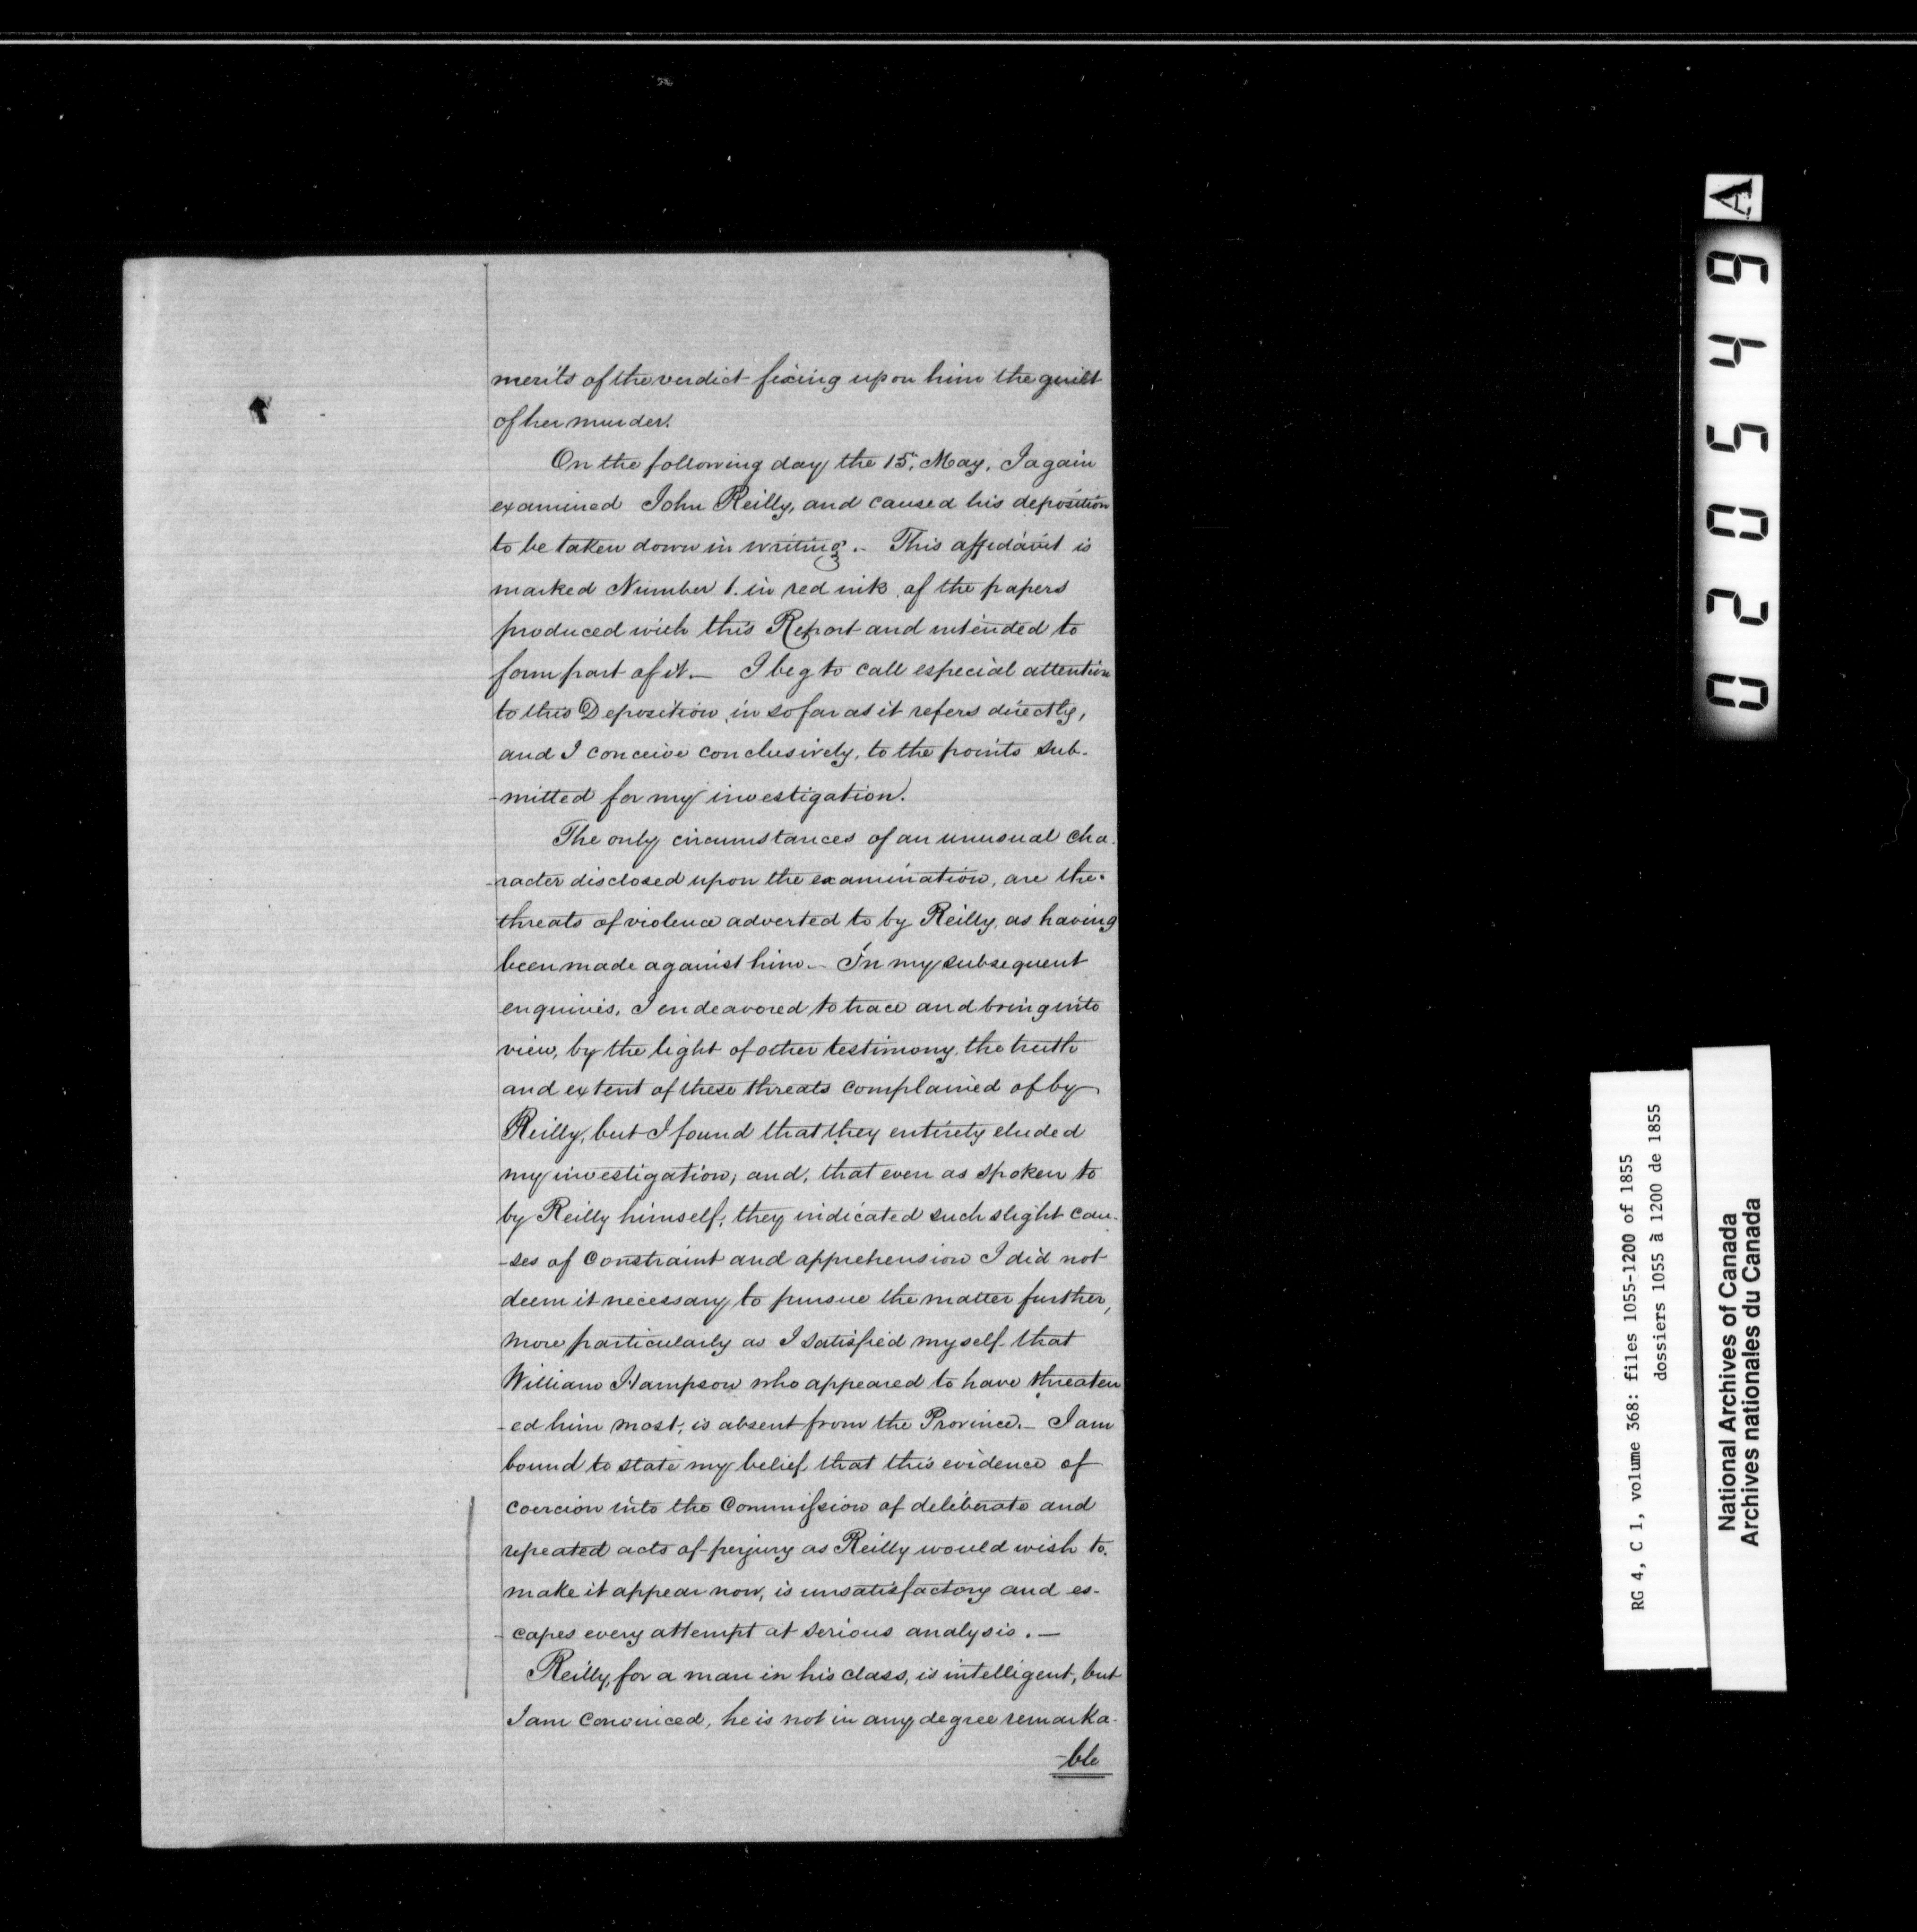 merits of the verdict fixing upon him the guilt
of her murder.
On the following day the 15th May, I again
examined John Reilly, and caused his deposition
to be taken down in writing.- This affidavit is
marked Number 1. in red ink of the papers
produced with this Report and intended to
form part of it.- I beg to call especial attention
to this Deposition, in so far as it refers directly,
and I conceive conclusively, to the points sub-
-mitted for my investigation.
The only circumstances of an unusual cha-
-racter disclosed upon the examination, are the
threats of violence adverted to by Reilly, as having
been made against him.- In my subsequent
enquiries, I endeavored to trace and bring into
view, by the light of other testimony, the truth
and extent of these threats complained of by
Reilly, but I found that they entirely eluded
my investigation; and, that even as spoken to
by Reilly himself, they indicated such slight cau-
-ses of constraint and apprehension I did not
deem it necessary to pursue the matter further,
more particularly as I satisfied myself that
William Hampson who appeared to have threaten
-ed him most, is absent from the Province.- I am
bound to state my belief, that this evidence of
coercion into the Commission of deliberate and
repeated acts of perjury as Reilly would wish to
make it appear now, is unsatisfactory and es-
-capes every attempt at serious analysis.-
Reilly, for a man in his class, is intelligent, but
I am convinced, he is not in any degree remarka-
-ble
020549 A
RG 4, C 1, volume 368: files 1055-1200 of 1855
dossiers 1055 à 1200 de 1855
National Archives of Canada
Archives nationales du Canada